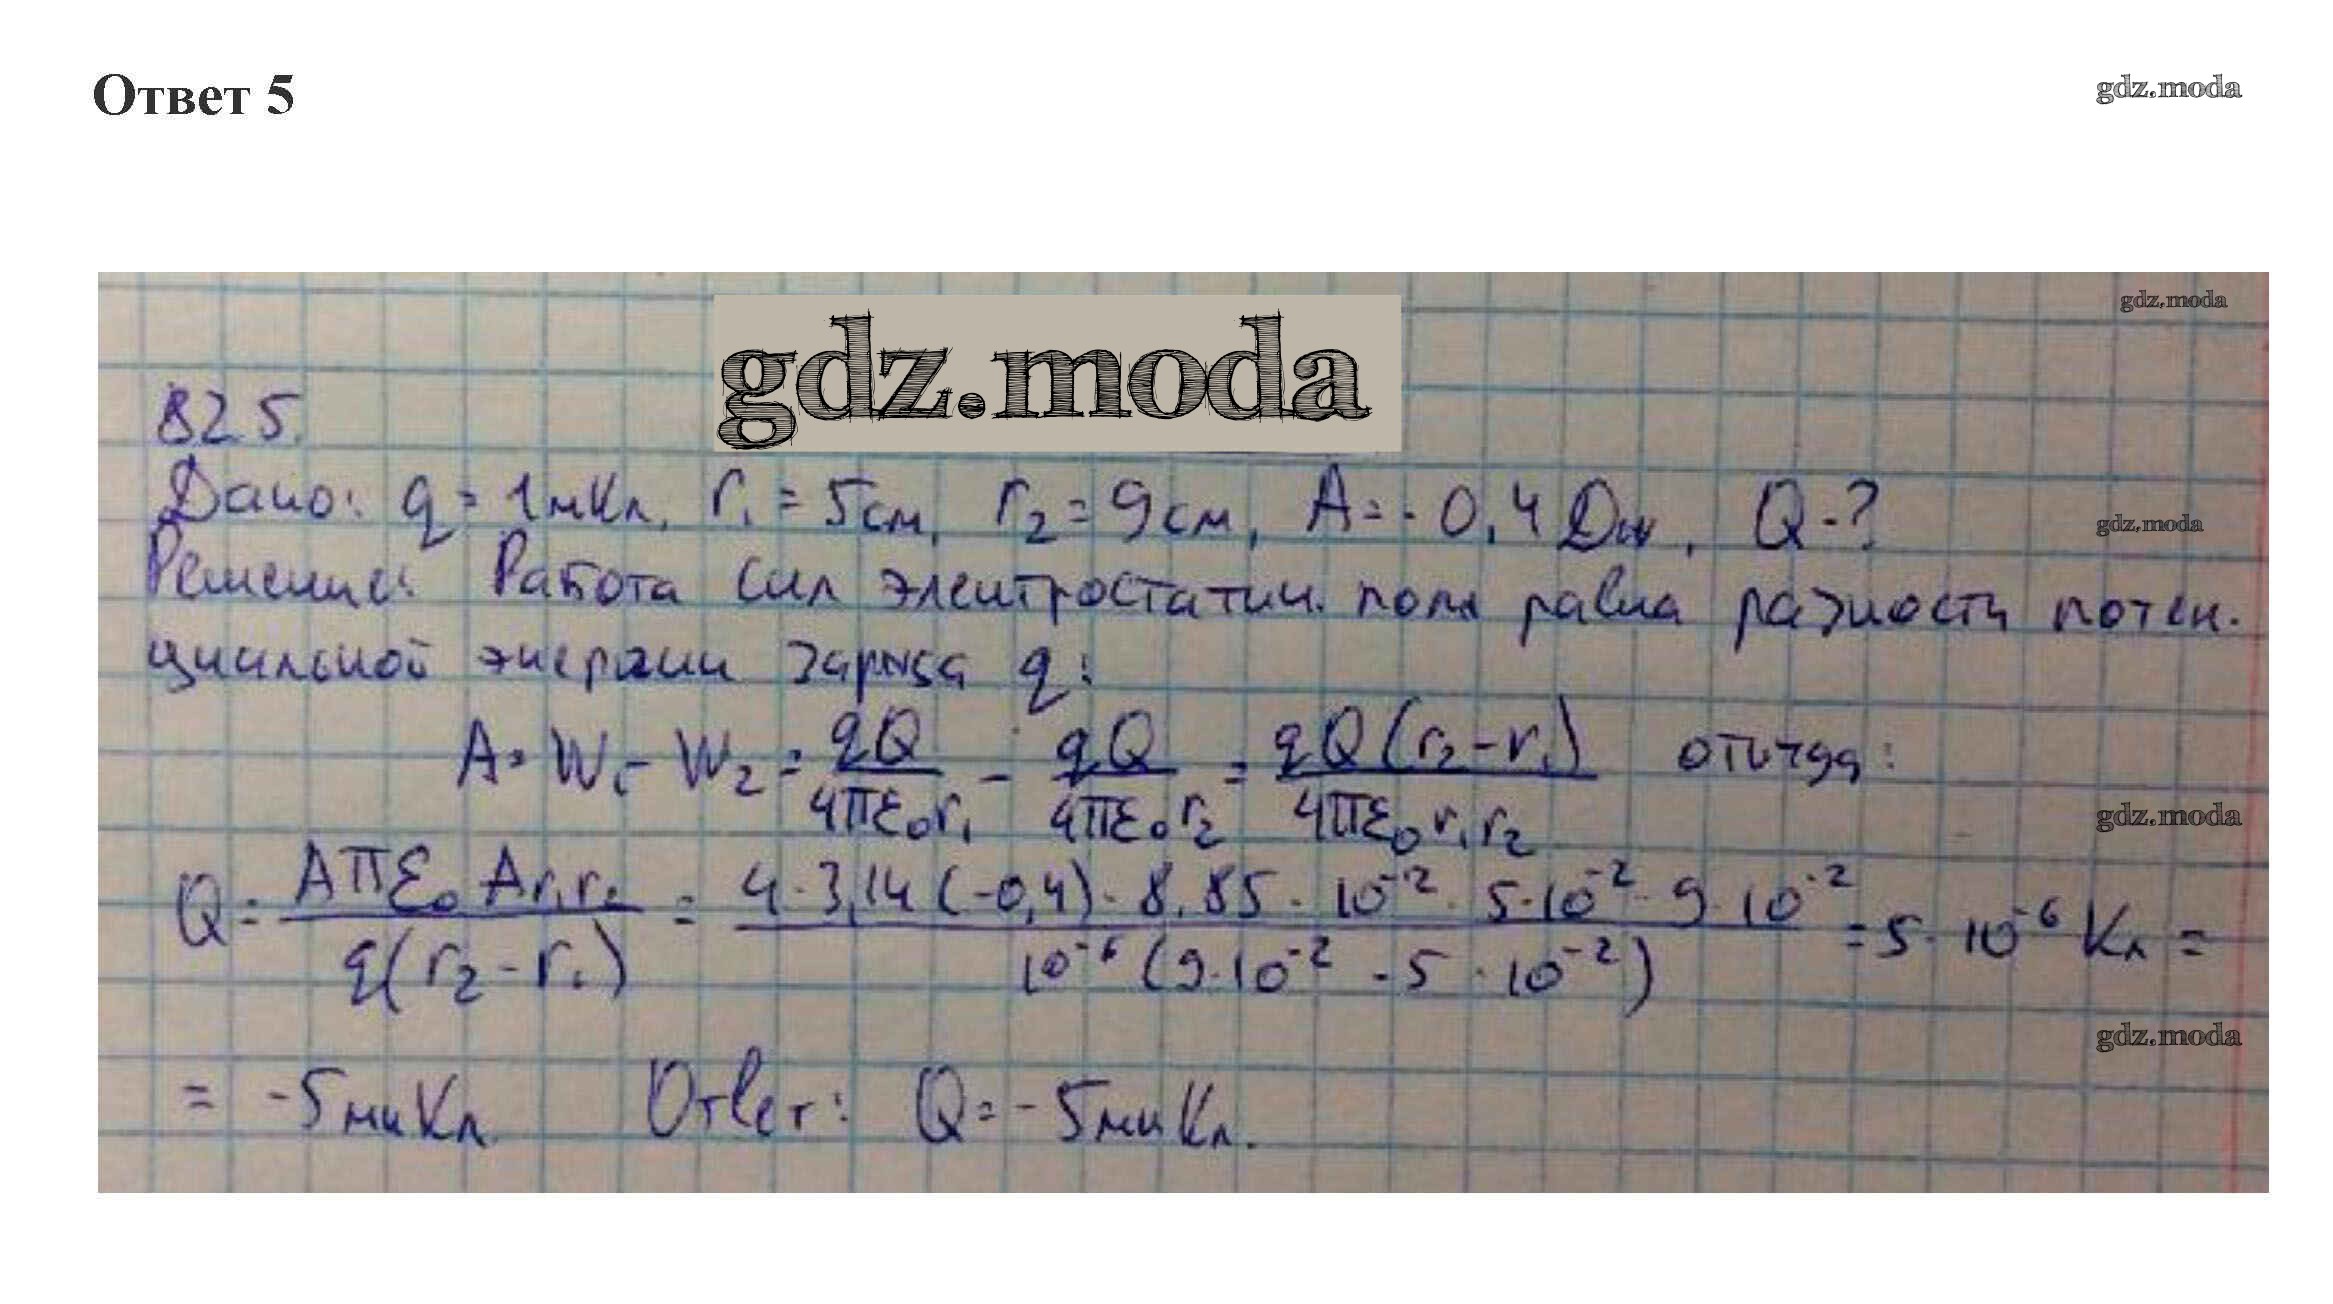 Ответ 5
gdz.moda
gdz.moda
gdz.moda
825.
Дано: q = 1мкКл, r₁ = 5см, r₂ = 9см, A = -0,4 Дж, Q -?
gdz.moda
Решение: Работа сил электростатич. поля равна разности потен.
циальной энергии заряда q:
A = W₁ - W₂ = qQ/4πε₀r₁ - qQ/4πε₀r₂ = qQ(r₂-r₁)/4πε₀r₁r₂ откуда:
gdz.moda
Q = Aπε₀Ar₁r₂/q(r₂-r₁) = 4·3,14(-0,4)·8,85·10⁻¹²·5·10⁻²·9·10⁻²/10⁻⁶(9·10⁻²-5·10⁻²) = 5·10⁻⁶Кл =
gdz.moda
= -5мкКл Ответ: Q = -5мкКл.